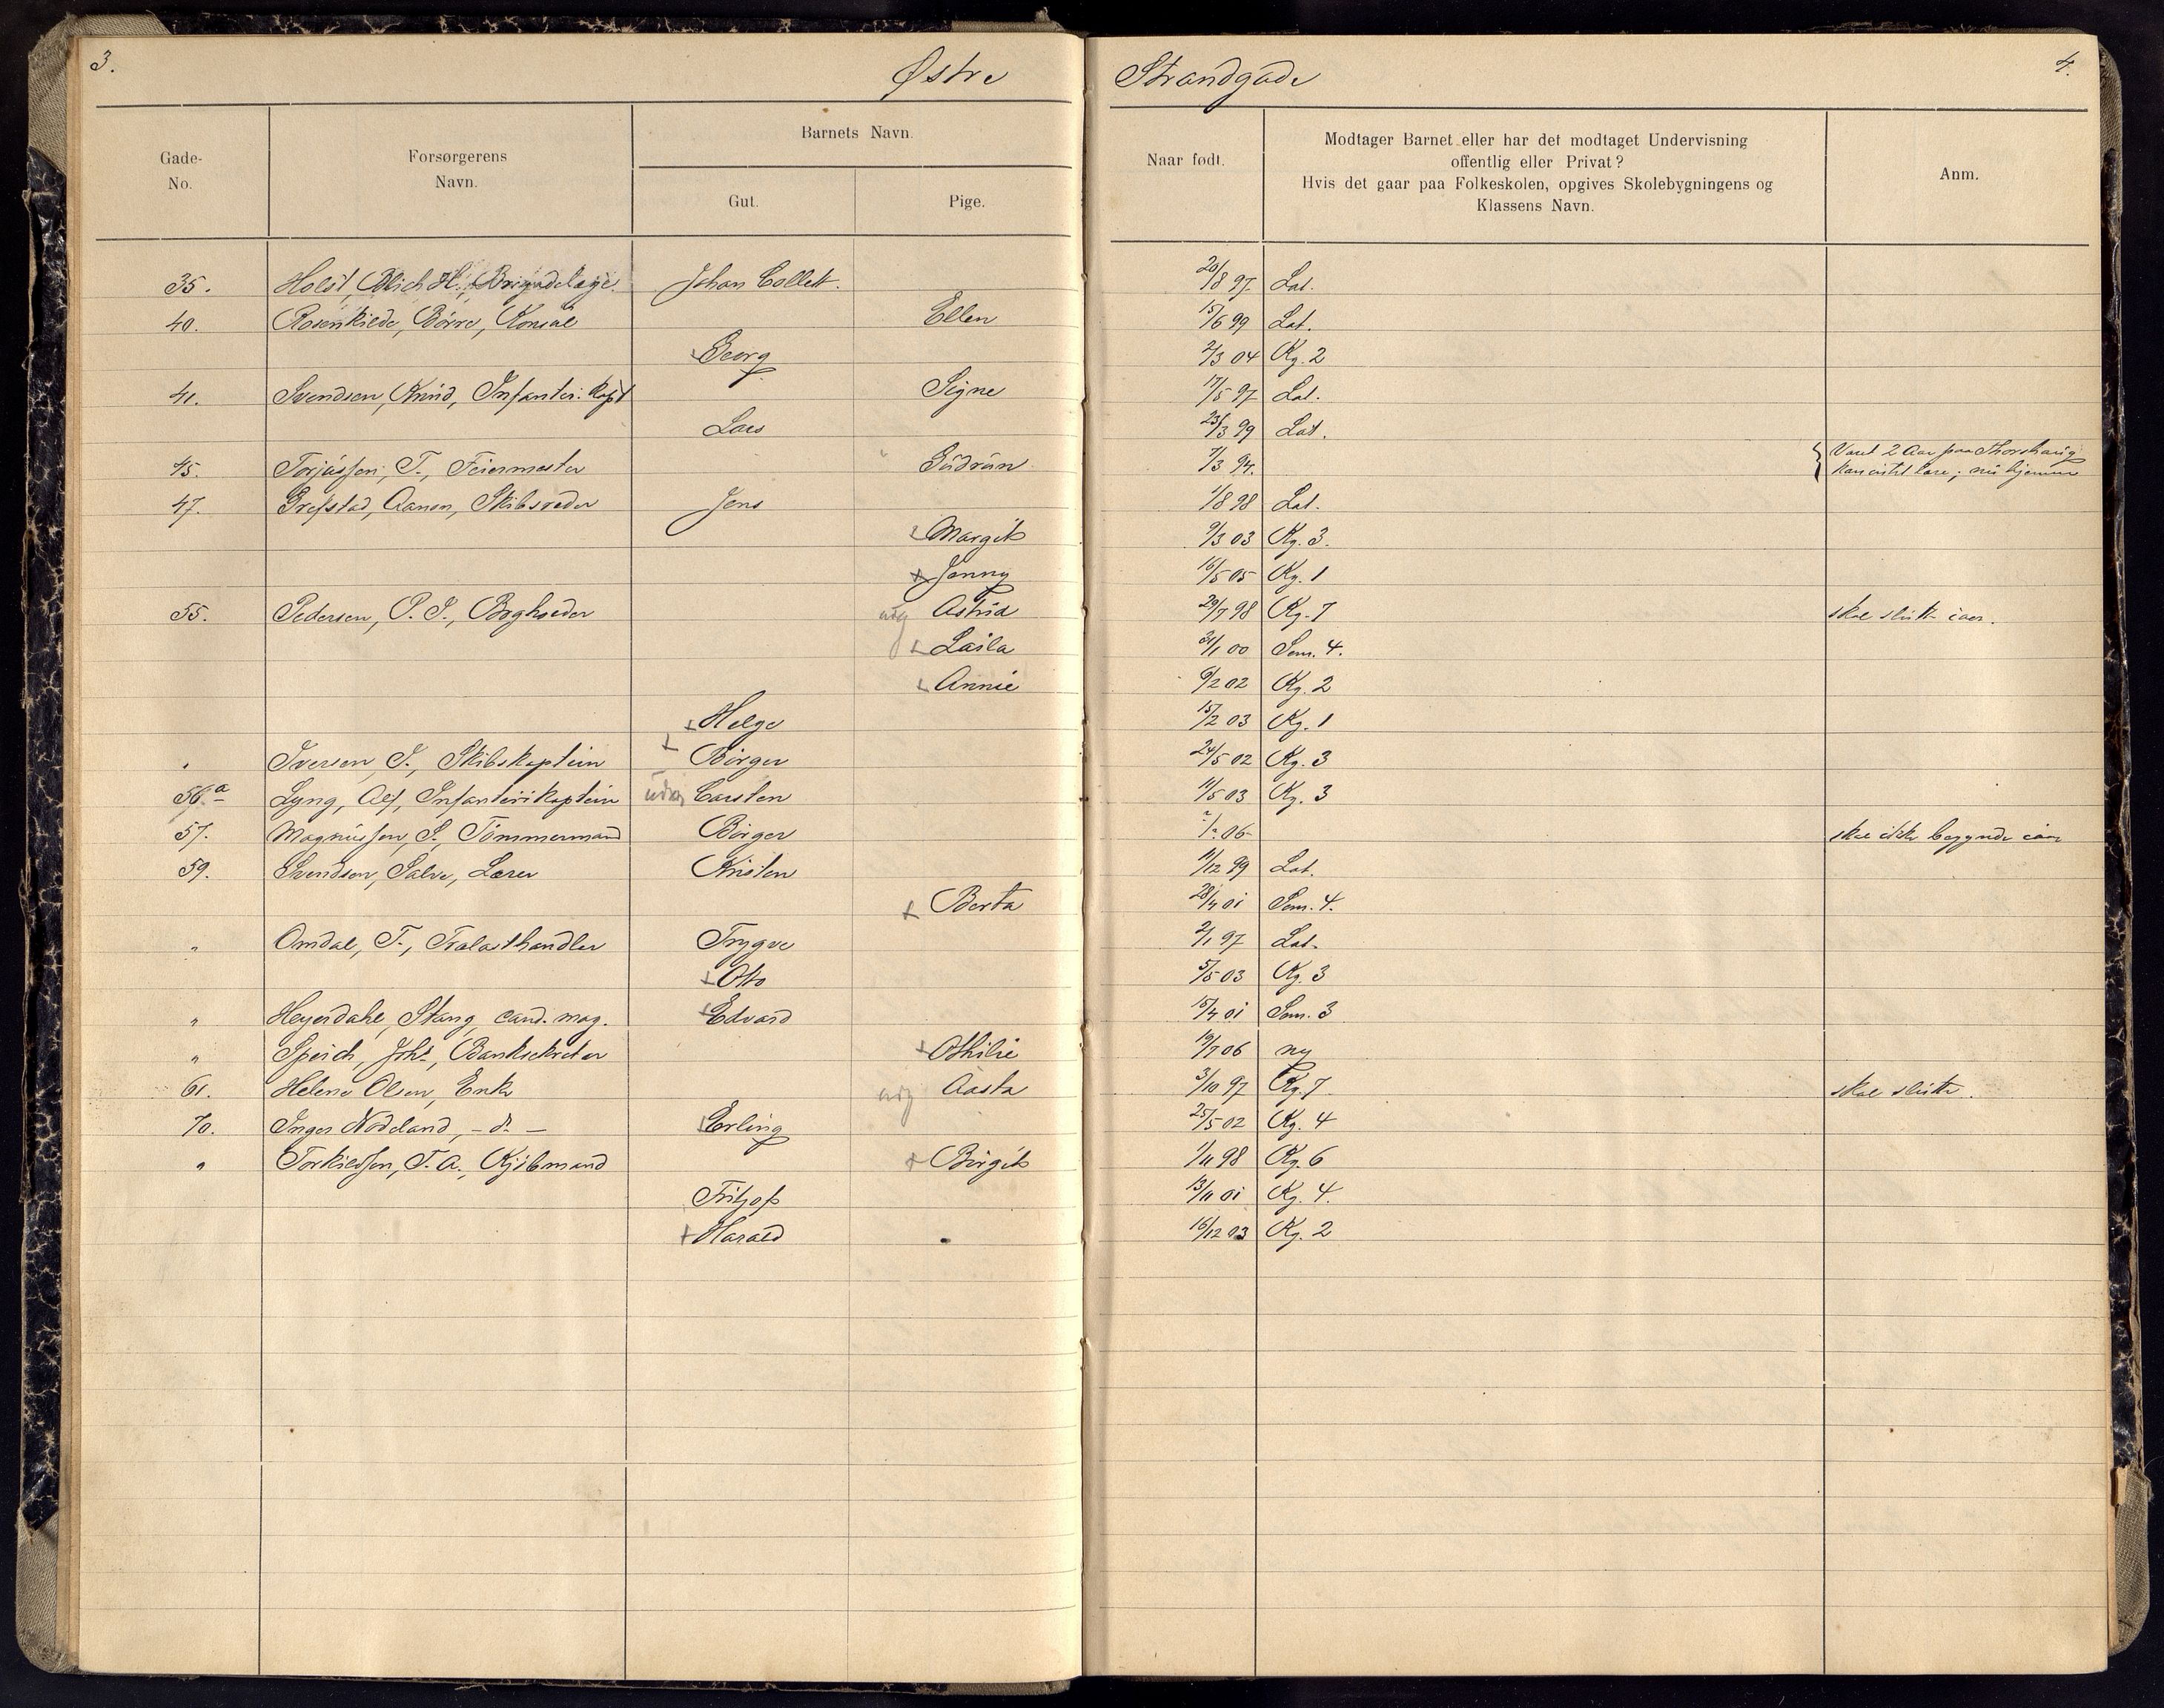 3.
Østre Strandgade
4.
Gade-
No.
Forsørgerens
Navn.
Barnets Navn.
Gut.
Pige.
Naar født.
Modtager Barnet eller har det modtaget Undervisning
offentlig eller Privat?
Hvis det gaar paa Folkeskolen, opgives Skolebygningens og
Klassens Navn.
Anm.
35. Holst, Blich H., Brigadelæge. Johan Collett. 20/8 97. Lat.
40. Rosenkilde, Börre, Konsul Ellen 15/6 99 Lat.
Georg 2/3 04 Kg. 2
41. Svendsen, Knud, Infanteri: Kapt Signe 17/5 97 Lat.
Lars 23/3 99 Lat.
45. Torjussen, T., Feiermester Gudrun 7/3 94. { Været 2 Aar paa Thorshaug
kan intet lære; nu hjemme
47. Grefstad, Aanon, Skibsreder Jens 1/8 98 Lat.
Margit 9/3 03 Kg. 3.
x Jenny 16/5 05 Kg. 1
55. Pedersen, P. S., Boghandler udg Astrid 29/7 98 Kg. 7 skal slutte iaar.
Laila 31/1 00 Sem. 4.
Annie 6/2 02 Kg. 2
Helge 15/2 03 Kg. 1
" Iversen, S., Skibskaptein Birger 24/5 02 Kg. 3
56 a Lyng, Alf, Infanterikaptein udg Carsten 11/5 03 Kg. 3
57. Magnussen, S., Tömmermand Birger ?/? 06 skal ikke begynde iaar
59. Svendsen, Salve, Lærer Kristen 11/12 99 Lat.
Berta 28/4 01 Sem. 4.
" Omdal, T., Trælasthandler Trygve 2/1 97 Lat.
Otto 5/5 03 Kg. 3
" Heyerdahl, Stang, cand. mag. Edvard 15/4 01 Sem. 3
" Speich, Johs, Banksekretær Othilie 19/7 06 ny
61. Helene Olsen, Enke udg Aasta 3/10 97 Kg. 7 skal slutte.
70. Inger Nodeland, - do - Erling 25/5 02 Kg. 4
" Torkildsen, T. A., Kjöbmand Birgit 1/11 98 Kg. 6
Fritjof 13/11 01 Kg. 4.
Harald 16/12 03 Kg. 2